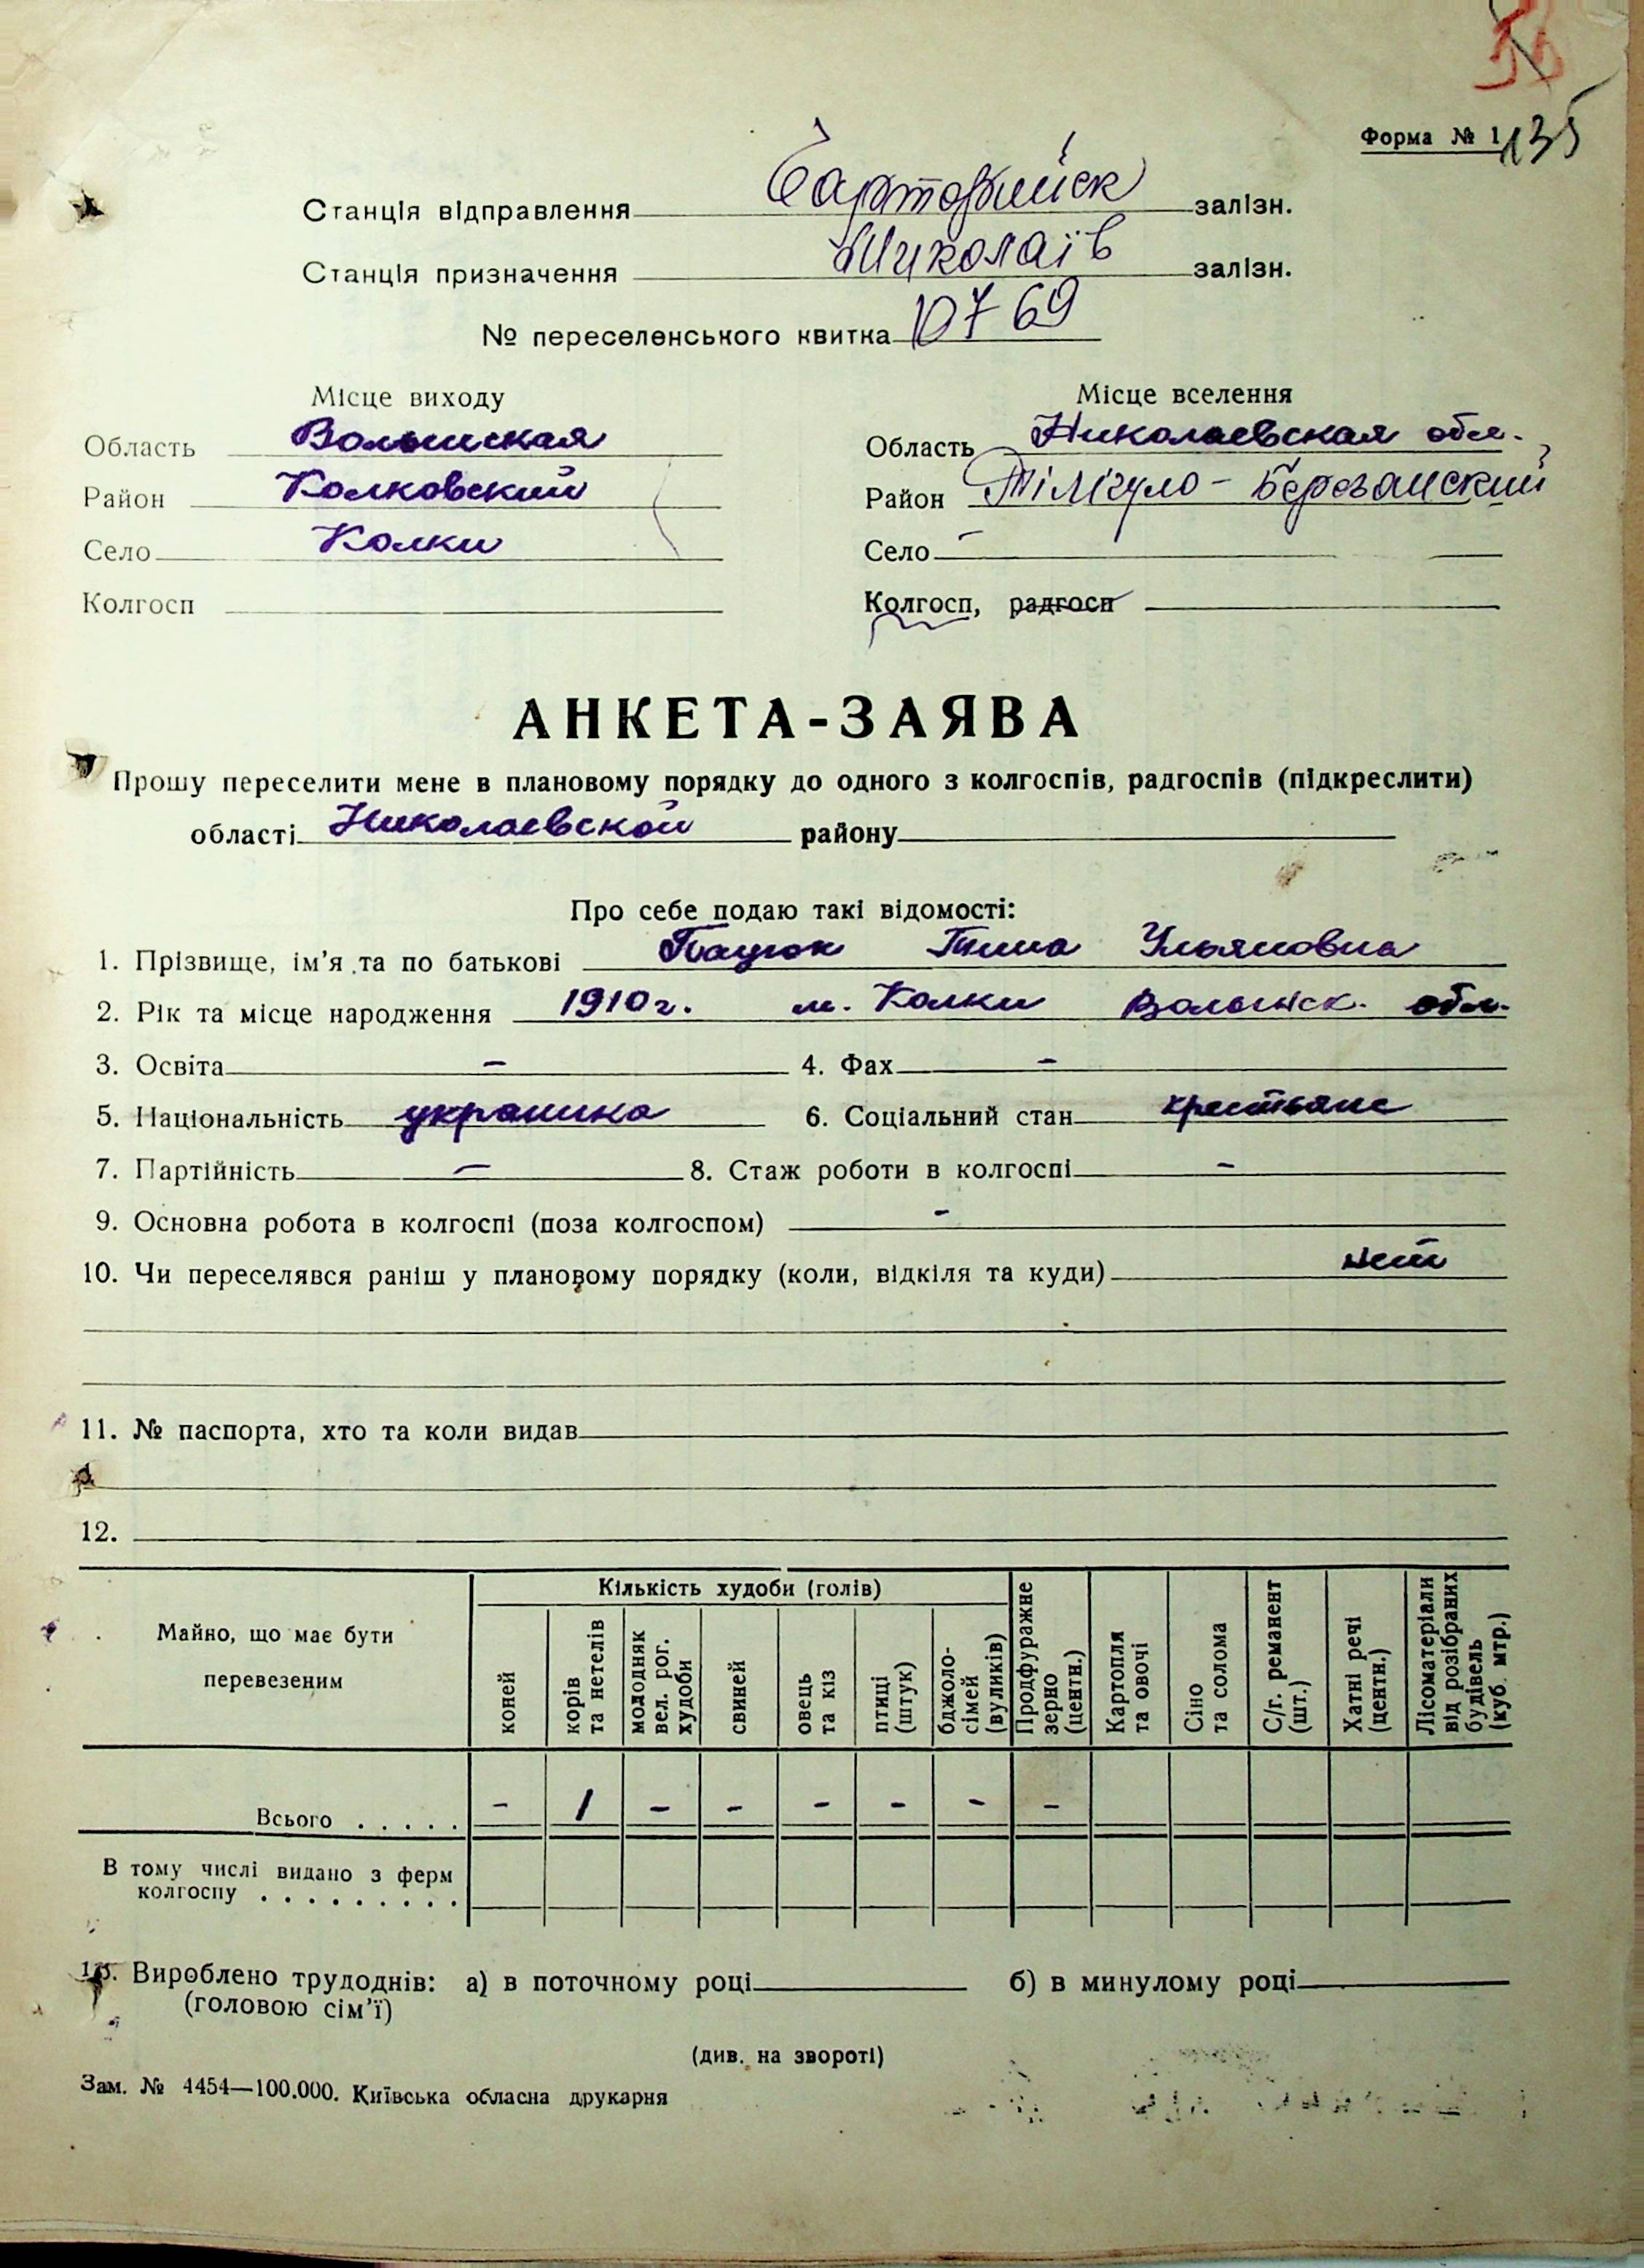 135
Форма № 1
Станція відправлення залізн.
Станція призначення Миколаїв залізн.
№ переселенського квитка 10769
Місце виходу
Область Волынская
Район Колковский
Село Колки
Колгосп
Місце вселення
Область Николаевская обл.
Район Тілігуло-Березанский
Село -
Колгосп, радгосп
АНКЕТА-ЗАЯВА
Прошу переселити мене в плановому порядку до одного з колгоспів, радгоспів (підкреслити)
області Николаевской району
Про себе подаю такі відомості:
1. Прізвище, ім'я та по батькові Пацюк Ульяновна
2. Рік та місце народження 1910г. м. Колки Волынск. обл.
3. Освіта - 4. Фах -
5. Національність украинка 6. Соціальний стан крестьяне
7. Партійність - 8. Стаж роботи в колгоспі -
9. Основна робота в колгоспі (поза колгоспом) -
10. Чи переселявся раніш у плановому порядку (коли, відкіля та куди) нет
11. № паспорта, хто та коли видав
12.
Майно, що має бути перевезеним
Кількість худоби (голів)
коней
корів та нетелів
молодняк вел. рог. худоби
свиней
овець та кіз
птиці (штук)
бджоло-сімей (вуликів)
Продфуражне зерно (центн.)
Картопля та овочі
Сіно та солома
С/г. реманент (шт.)
Хатні речі (центн.)
Лісоматеріали від розібраних будівель (куб. мтр.)
Всього . . . . . - 1 - - - - - -
В тому числі видано з ферм
колгоспу . . . . . . . . .
13. Вироблено трудоднів: а) в поточному році б) в минулому році
(головою сім'ї)
(див. на звороті)
Зам. № 4454—100.000. Київська обласна друкарня